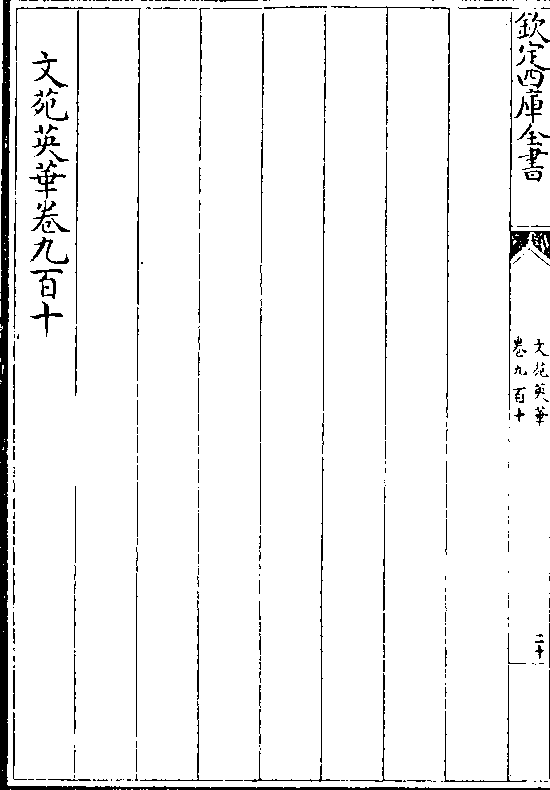 欽定四庫全書
文苑英華
卷九百十
二十
文苑英華卷九百十